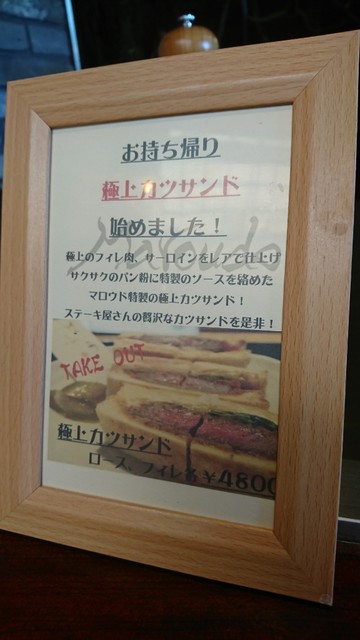 お持ち帰り
極上カツサンド
始めました！
Maroudo
極上のフィレ肉、サーロインをレアで仕上げ
サクサクのパン粉に特製のソースを絡めた
マロウド特製の極上カツサンド！
ステーキ屋さんの贅沢なカツサンドを是非！
TAKE OUT
極上カツサンド
ロース、フィレ各￥4800